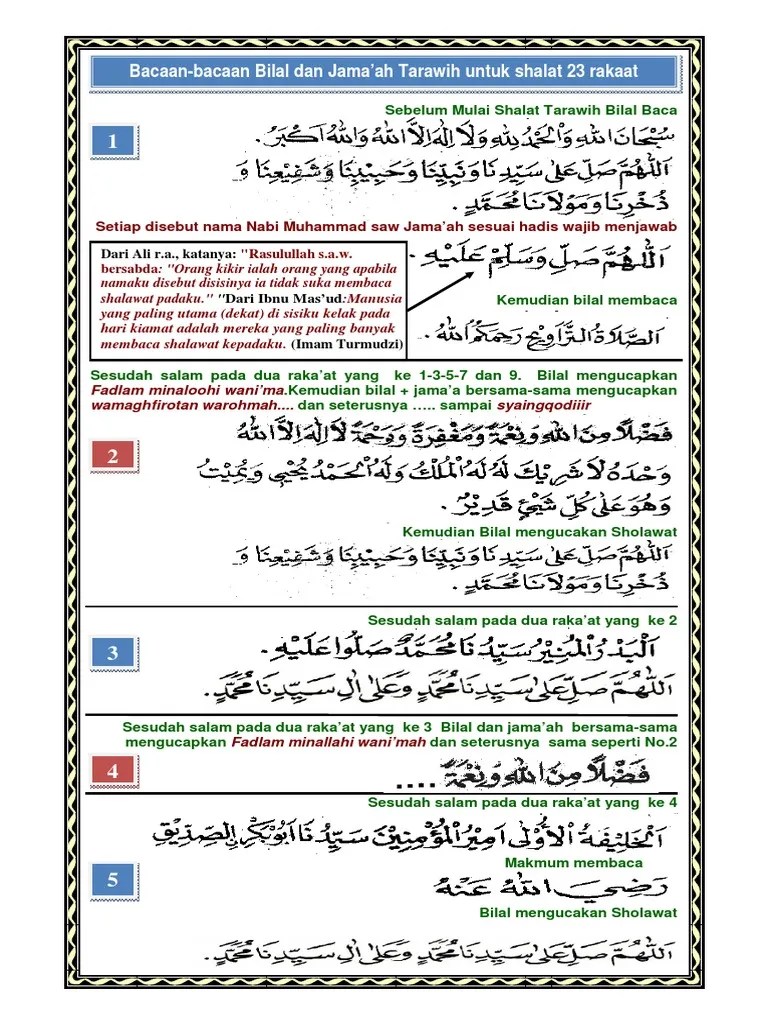 Bacaan-bacaan Bilal dan Jama'ah Tarawih untuk shalat 23 rakaat
Sebelum Mulai Shalat Tarawih Bilal Baca
1
سُبْحَانَ اللهِ وَالْحَمْدُ لِلهِ وَلَا إِلٰهَ إِلَّا اللهُ وَاللهُ أَكْبَرُ.
اَللّٰهُمَّ صَلِّ عَلَى سَيِّدِنَا وَنَبِيِّنَا وَحَبِيْبِنَا وَشَفِيْعِنَا وَ
ذُخْرِنَا وَمَوْلَانَا مُحَمَّدٍ.
Setiap disebut nama Nabi Muhammad saw Jama'ah sesuai hadis wajib menjawab
اَللّٰهُمَّ صَلِّ وَسَلِّمْ عَلَيْهِ.
Dari Ali r.a., katanya: "Rasulullah s.a.w.
bersabda: "Orang kikir ialah orang yang apabila
namaku disebut disisinya ia tidak suka membaca
shalawat padaku." "Dari Ibnu Mas'ud:Manusia
yang paling utama (dekat) di sisiku kelak pada
hari kiamat adalah mereka yang paling banyak
membaca shalawat kepadaku. (Imam Turmudzi)
Kemudian bilal membaca
اَلصَّلَاةُ التَّرَاوِيْحِ رَحِمَكُمُ اللهُ.
Sesudah salam pada dua raka'at yang ke 1-3-5-7 dan 9. Bilal mengucapkan
Fadlam minaloohi wani'ma.Kemudian bilal + jama'a bersama-sama mengucapkan
wamaghfirotan warohmah.... dan seterusnya ..... sampai syaingqodiiir
2
فَضْلًا مِنَ اللهِ وَنِعْمَةً وَمَغْفِرَةً وَرَحْمَةً لَا إِلٰهَ إِلَّا اللهُ
وَحْدَهُ لَا شَرِيْكَ لَهُ لَهُ الْمُلْكُ وَلَهُ الْحَمْدُ يُحْيِي وَيُمِيْتُ
وَهُوَ عَلَى كُلِّ شَيْءٍ قَدِيْرٌ.
Kemudian Bilal mengucakan Sholawat
اَللّٰهُمَّ صَلِّ عَلَى سَيِّدِنَا وَنَبِيِّنَا وَحَبِيْبِنَا وَشَفِيْعِنَا وَ
ذُخْرِنَا وَمَوْلَانَا مُحَمَّدٍ.
Sesudah salam pada dua raka'at yang ke 2
3
اَلْبَدْرُ الْمُنِيْرُ سَيِّدُنَا مُحَمَّدٌ صَلُّوْا عَلَيْهِ.
اَللّٰهُمَّ صَلِّ عَلَى سَيِّدِنَا مُحَمَّدٍ وَعَلَى اٰلِ سَيِّدِنَا مُحَمَّدٍ.
Sesudah salam pada dua raka'at yang ke 3 Bilal dan jama'ah bersama-sama
mengucapkan Fadlam minallahi wani'mah dan seterusnya sama seperti No.2
4
فَضْلًا مِنَ اللهِ وَنِعْمَةً ....
Sesudah salam pada dua raka'at yang ke 4
اَلْخَلِيْفَةُ الْأُوْلَى أَمِيْرُ الْمُؤْمِنِيْنَ سَيِّدُنَا أَبُوْبَكْرٍ الصِّدِّيْقِ
Makmum membaca
5
رَضِيَ اللهُ عَنْهُ
Bilal mengucakan Sholawat
اَللّٰهُمَّ صَلِّ عَلَى سَيِّدِنَا مُحَمَّدٍ وَعَلَى اٰلِ سَيِّدِنَا مُحَمَّدٍ.